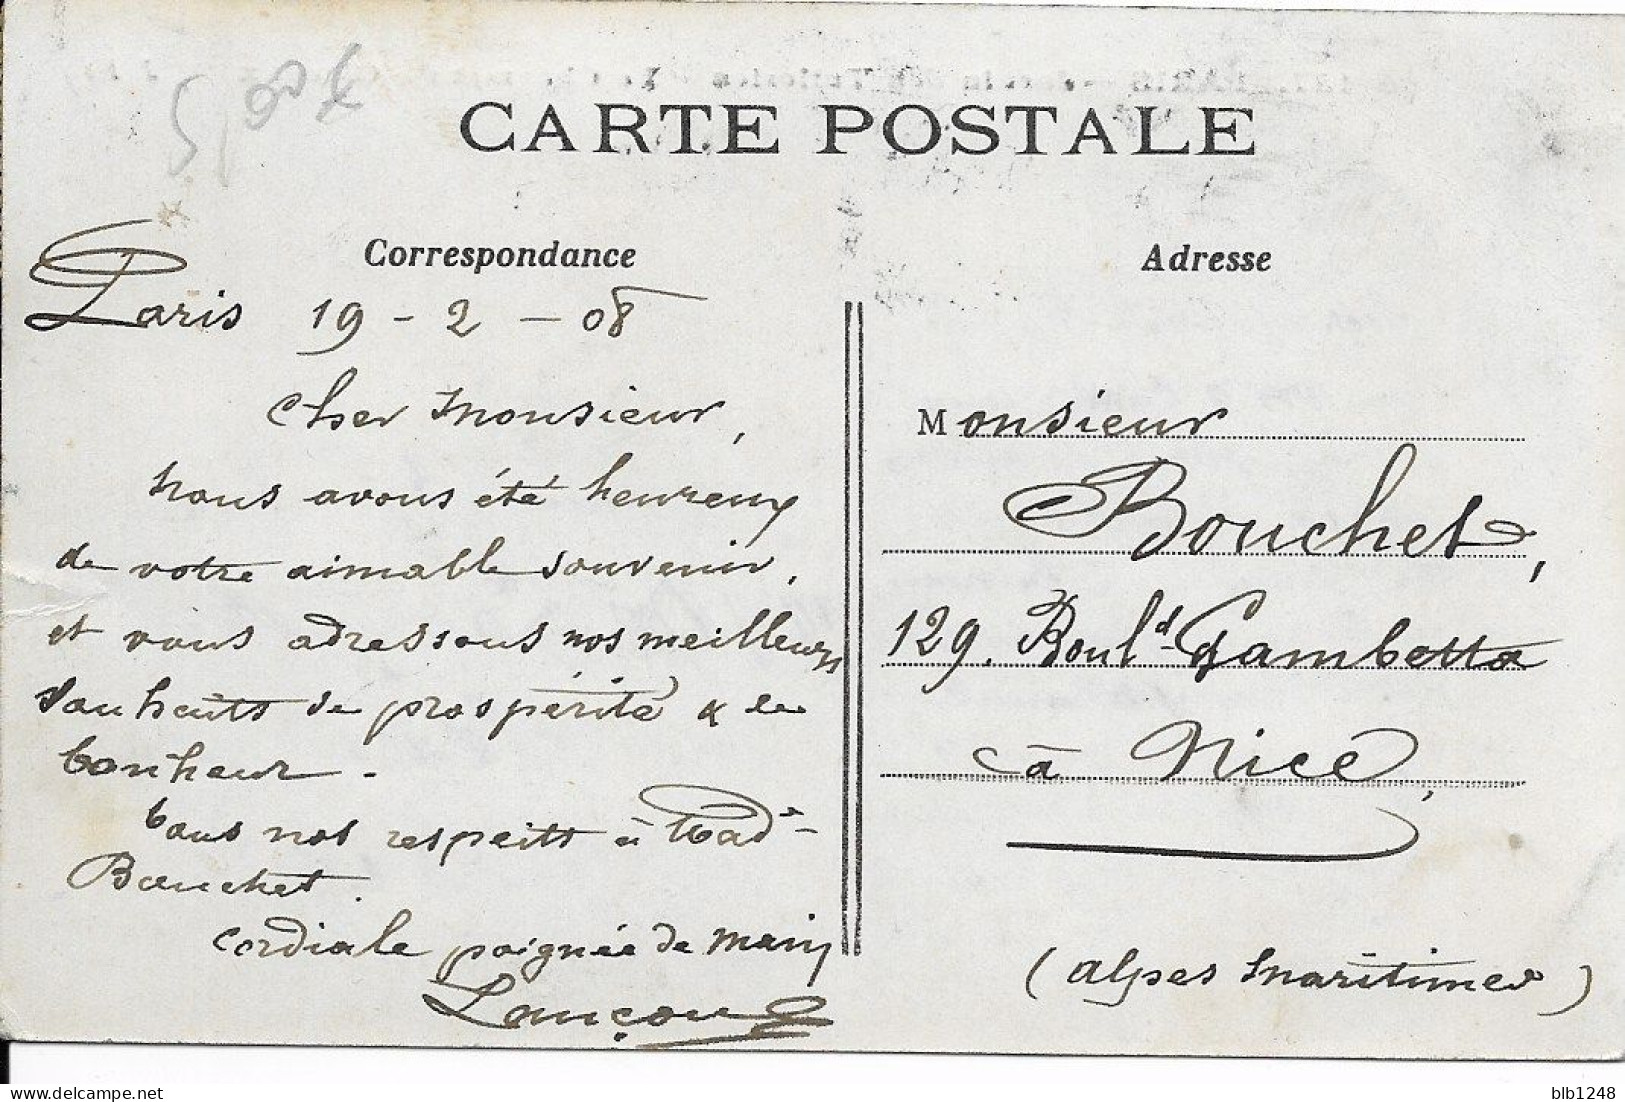 CARTE POSTALE
Correspondance
Paris 19 - 2 - 08
Cher Monsieur,
nous avons été heureux
de votre aimable souvenir,
et vous adressons nos meilleurs
souhaits de prospérité & de
bonheur.
Tous nos respects à Made
Bouchet.
Cordiale poignée de main
Lançon
Adresse
Monsieur
Bouchet,
129, Bould Gambetta
à Nice,
(Alpes Maritimes)
blb1248